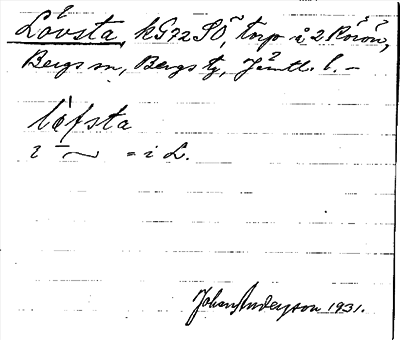 Lövsta, kG72SO, torp å 2 Rörön,
Bergs sn, Bergs tg, Jämtl. l. –
löfsta
i ~ = i L.
Johan Anderson 1931.